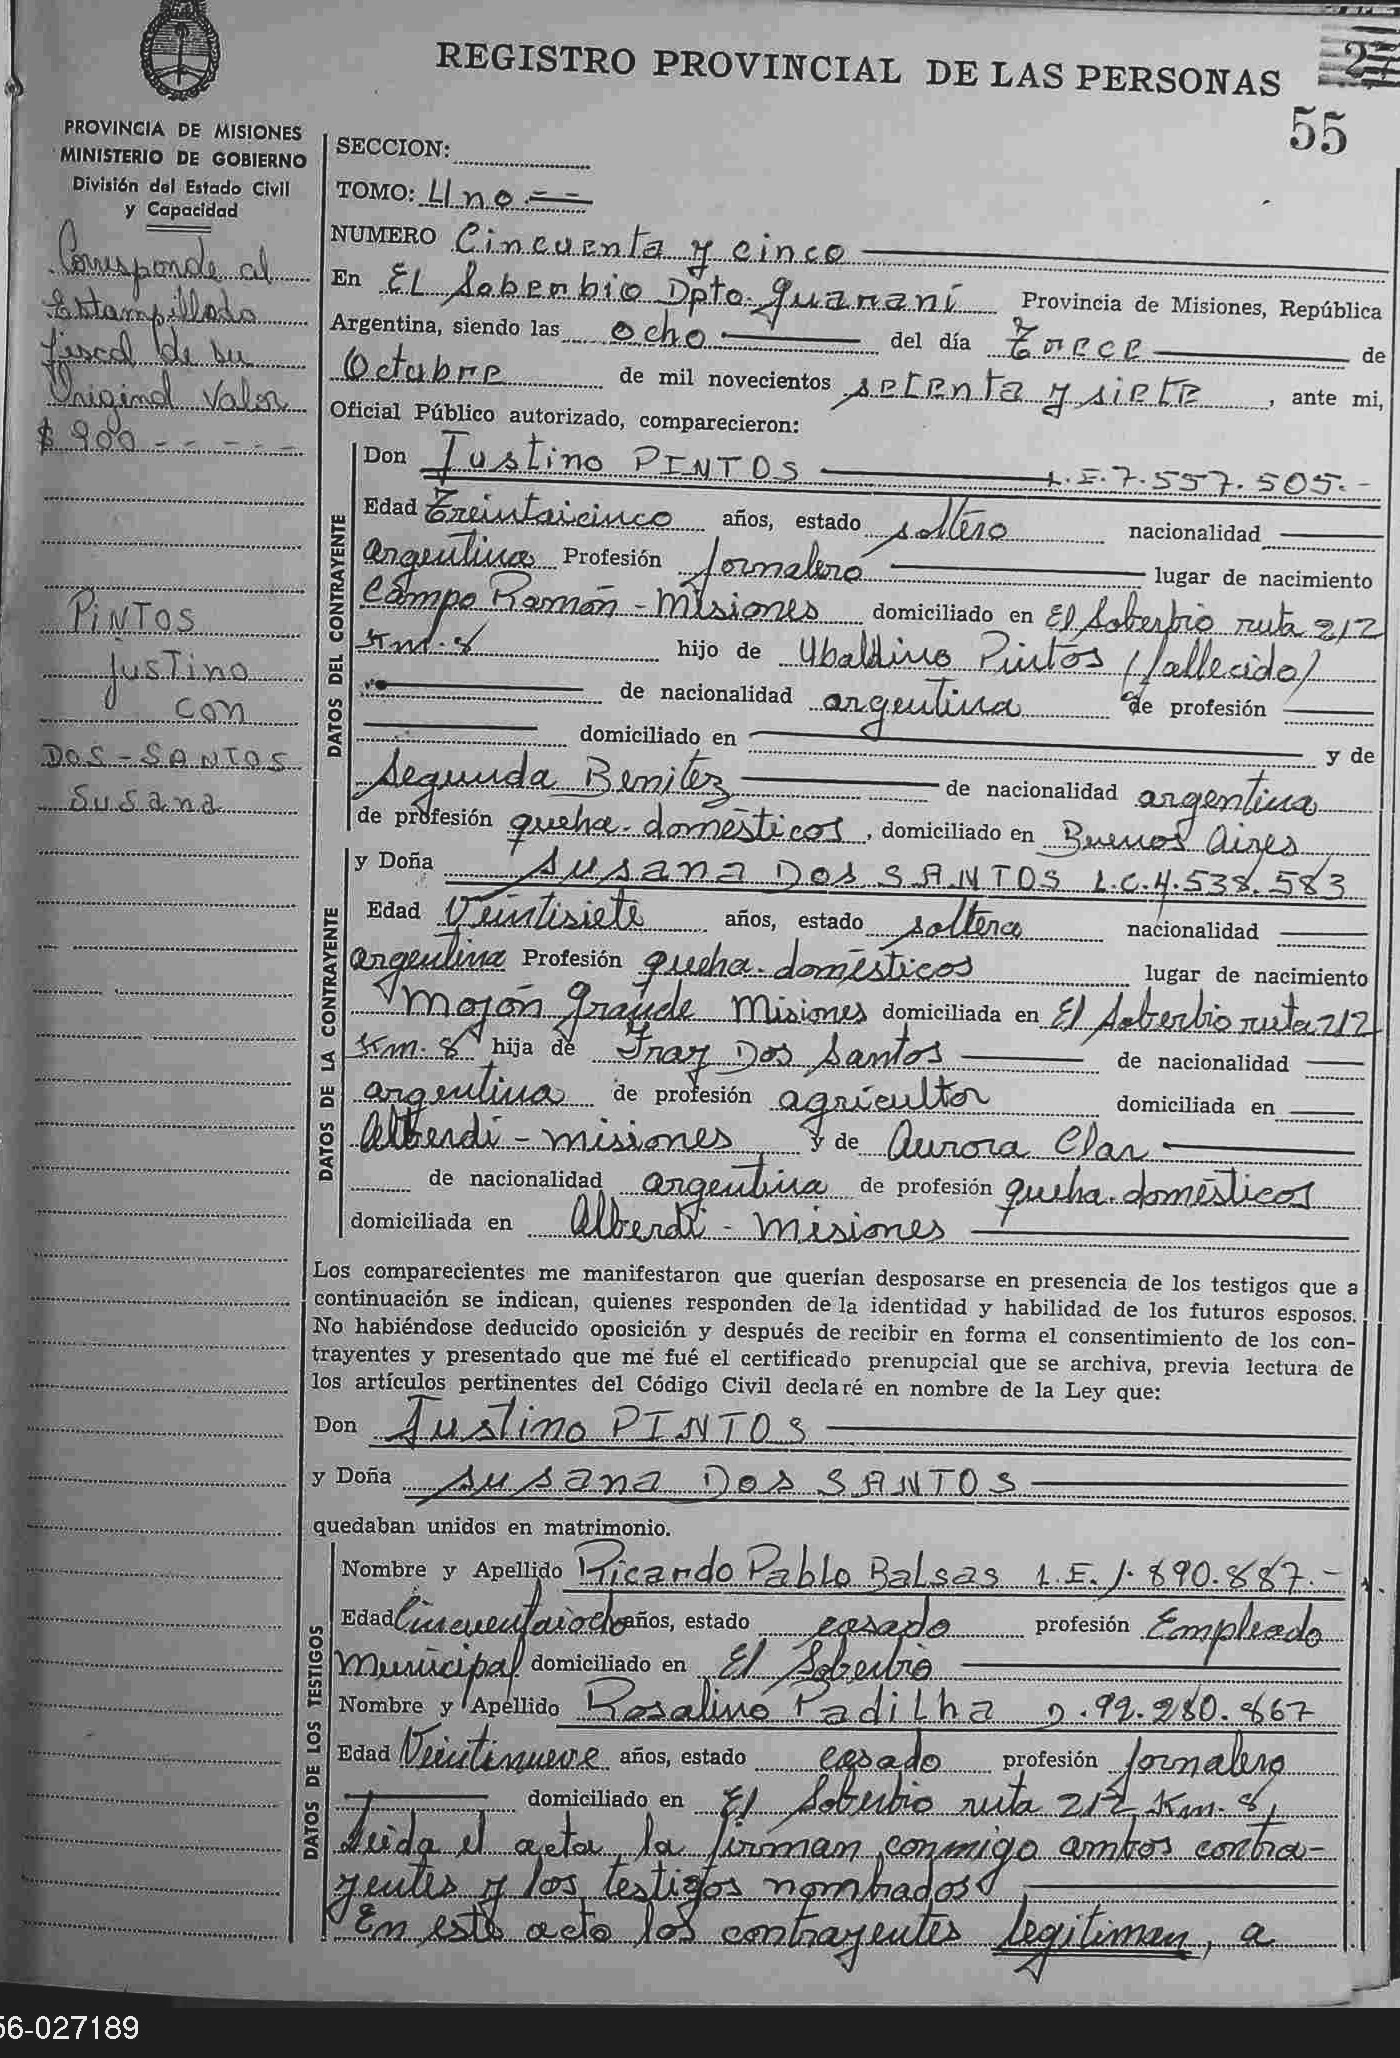 REGISTRO PROVINCIAL DE LAS PERSONAS
27
55
PROVINCIA DE MISIONES
MINISTERIO DE GOBIERNO
División del Estado Civil
y Capacidad
Corresponde al
Estampillado
fiscal de su
Original Valor
$ 900 - - - - - -
PINTOS
Justino
con
DOS-SANTOS
Susana
SECCION:
TOMO: Uno ==
NUMERO Cincuenta y cinco
En EL Soberbio Dpto. Guaraní Provincia de Misiones, República
Argentina, siendo las ocho del día Trece de
Octubre de mil novecientos setenta y siete, ante mi,
Oficial Público autorizado, comparecieron:
DATOS DEL CONTRAYENTE
Don Justino PINTOS L.E.7.557.505.-
Edad Treintaicinco años, estado soltero nacionalidad
argentina Profesión jornalero lugar de nacimiento
Campo Ramón - Misiones domiciliado en El Soberbio ruta 212
Km. 8 hijo de Ubaldino Pintos (fallecido)
de nacionalidad argentina de profesión
domiciliado en y de
Segunda Benitez de nacionalidad argentina
de profesión queha. domésticos, domiciliado en Buenos Aires
DATOS DE LA CONTRAYENTE
y Doña SUSANA DOS SANTOS L.C.4.538.583
Edad Veintisiete años, estado soltera nacionalidad
argentina Profesión queha. domésticos lugar de nacimiento
Mojón Grande Misiones domiciliada en El Soberbio ruta 212
Km. 8 hija de Fray Dos Santos de nacionalidad
argentina de profesión agricultor domiciliada en
Alberdi - misiones y de Aurora Clar
de nacionalidad argentina de profesión queha. domésticos
domiciliada en Alberdi - misiones
Los comparecientes me manifestaron que querían desposarse en presencia de los testigos que a
continuación se indican, quienes responden de la identidad y habilidad de los futuros esposos.
No habiéndose deducido oposición y después de recibir en forma el consentimiento de los con-
trayentes y presentado que me fué el certificado prenupcial que se archiva, previa lectura de
los artículos pertinentes del Código Civil declaré en nombre de la Ley que:
Don Justino PINTOS
y Doña SUSANA DOS SANTOS
quedaban unidos en matrimonio.
DATOS DE LOS TESTIGOS
Nombre y Apellido Ricardo Pablo Balsas L.E. 1.890.887.-
Edad Cincuentaiocho años, estado casado profesión Empleado
Municipal domiciliado en El Soberbio
Nombre y Apellido Rosalino Padilha D.92.280.867
Edad Veintinueve años, estado casado profesión jornalero
domiciliado en El Soberbio ruta 212 Km. 8,
Leida el acta, la firman conmigo ambos contra-
yentes y los testigos nombrados
En este acto los contrayentes legitiman, a
56-027189